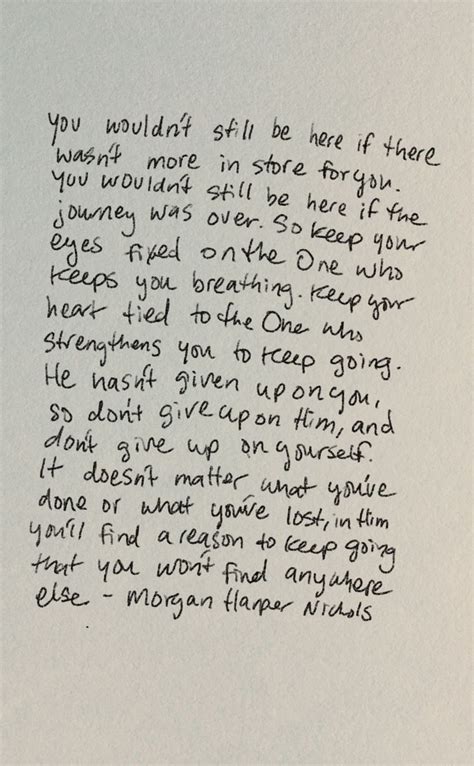 you wouldn't still be here if there
wasn't more in store for you.
you wouldn't still be here if the
journey was over. So keep your
eyes fixed on the One who
keeps you breathing. Keep your
heart tied to the One who
strengthens you to keep going.
He hasn't given up on you,
so don't give up on Him, and
don't give up on yourself.
It doesn't matter what you've
done or what you've lost, in Him
you'll find a reason to keep going
that you won't find anywhere
else - Morgan Harper Nichols